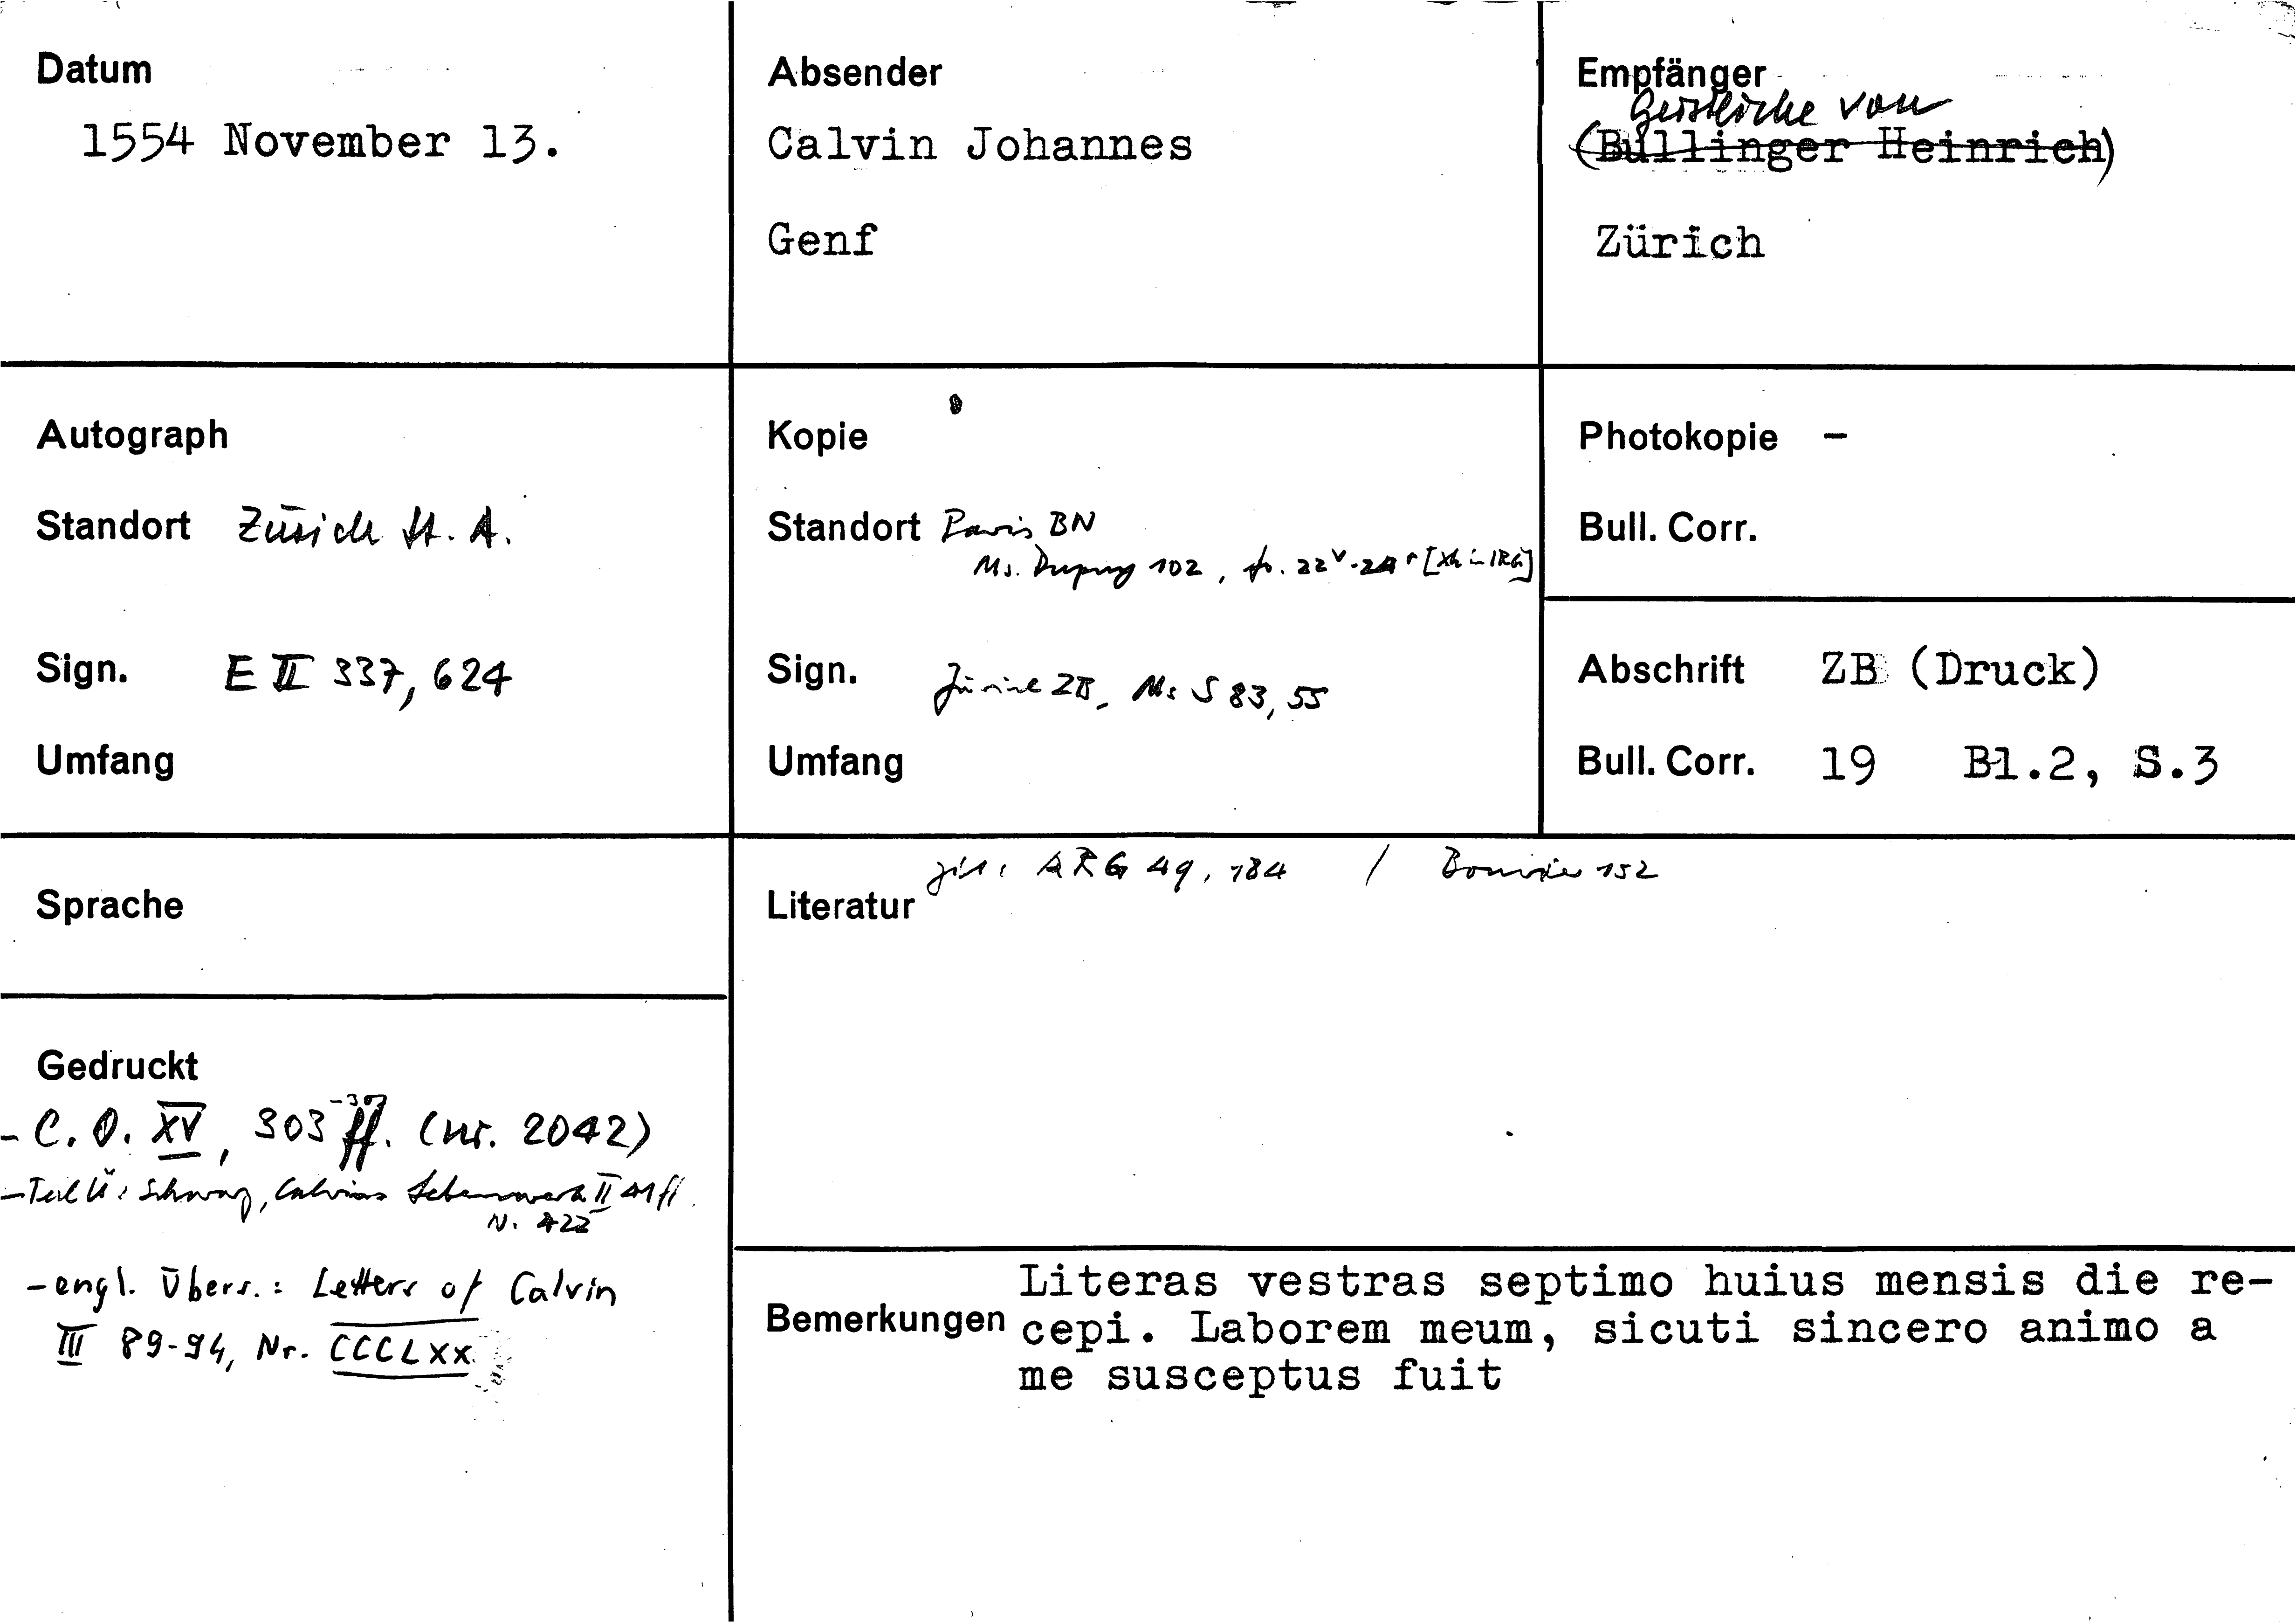 Datum
1554 November 13.
Absender
Calvin Johannes
Genf
Empfänger
Geistliche von
(Bullinger Heinrich)
Zürich
Autograph
Standort Zürich St. A.
Sign. E II 337, 624
Umfang
Kopie
Standort Paris BN
Ms. Dupuy 102, fo. 22v-24r
Sign. Zürich ZB, Ms S 83, 55
Umfang
Photokopie -
Bull. Corr.
Abschrift ZB (Druck)
Bull. Corr. 19 Bl.2, S.3
Sprache
Literatur zit.: ARG 49, 184 /
Gedruckt
- C. O. XV, 303 ff. (Nr. 2042)
- Teil Ü: Schwarz, Calvins Lebenswerk II 41 ff.
N. 422
- engl. Übers.: Letters of Calvin
III 89-94, Nr. CCCLXX
Bemerkungen
Literas vestras septimo huius mensis die re-
cepi. Laborem meum, sicuti sincero animo a
me susceptus fuit